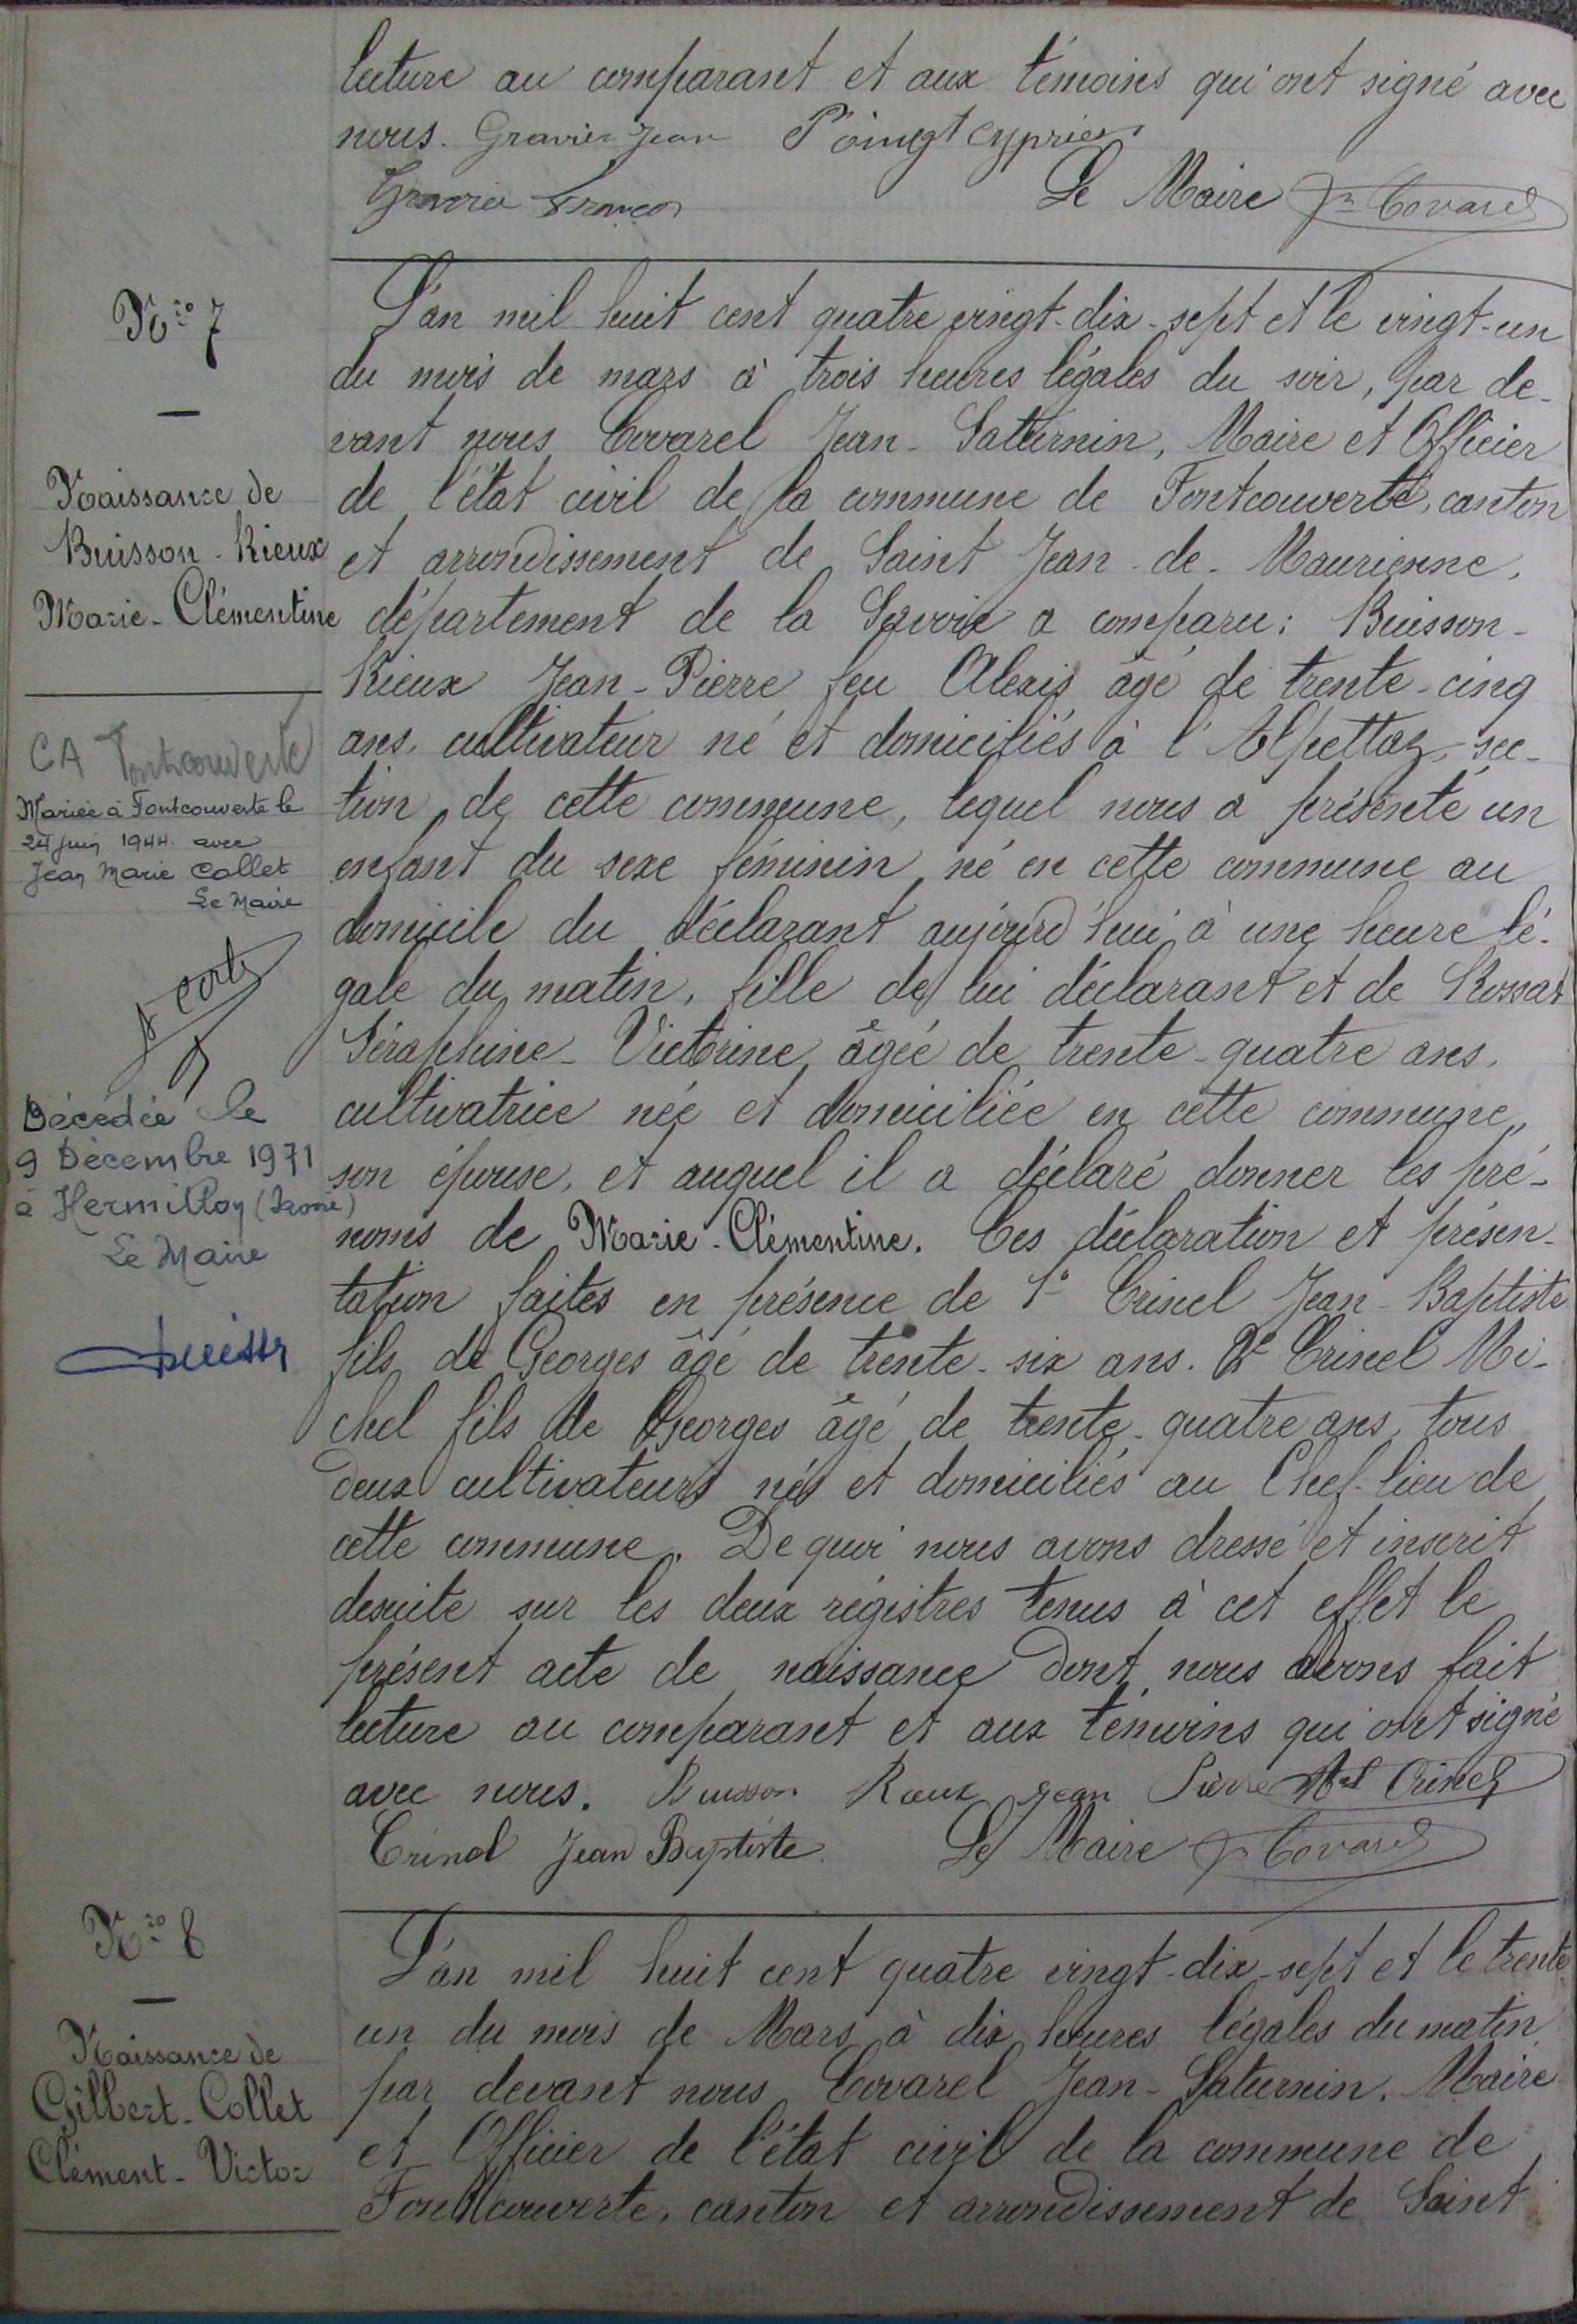 lecture au comparant et aux témoins qui ont signé avec
nous. Gravier Jean Poingt Cyprien
Gravier François
Le Maire Jn Covarel
Nro 7
Naissance de
Buisson-Rieux
Marie-Clémentine
CA Fontcouverte
Mariée à Fontcouverte le
24 juin 1944. avec
Jean Marie Collet
Le Maire
Décédée le
9 Décembre 1971
à Hermillon (Savoie)
Le Maire
L'an mil huit cent quatre vingt-dix-sept et le vingt-un
du mois de mars à trois heures légales du soir, par de-
vant nous Covarel Jean-Saturnin, Maire et Officier
de l'état civil de la commune de Fontcouverte, canton
et arrondissement de Saint Jean-de-Maurienne,
département de la Savoie a comparu: Buisson-
Rieux Jean-Pierre feu Alexis âgé de trente-cinq
ans, cultivateur né et domiciliés à l'Alpettaz, sec-
tion de cette commune, lequel nous a présenté un
enfant du sexe féminin né en cette commune au
domicile du déclarant aujourd'hui à une heure lé-
gale du matin, fille de lui déclarant et de Rossat
Séraphine-Victorine âgée de trente-quatre ans,
cultivatrice née et domiciliée en cette commune,
son épouse, et auquel il a déclaré donner les pré-
noms de Marie-Clémentine. Ces déclaration et présen-
tation faites en présence de 1° Crinel Jean-Baptiste
fils de Georges âgé de trente-six ans. 2° Crinel Mi-
chel fils de Georges âgé de trente-quatre ans, tous
deux cultivateurs nés et domiciliés au Chef-lieu de
cette commune. De quoi nous avons dressé et inscrit
desuite sur les deux régistres tenus à cet effet le
présent acte de naissance dont nous avons fait
lecture au comparant et aux témoins qui ont signé
avec nous. Buisson Rieux Jean Pierre Mel Crinel
Crinel Jean Baptiste Le Maire Jn Covarel
Nro 8
Naissance de
Gilbert-Collet
Clément-Victor
L'an mil huit cent quatre vingt-dix-sept et le trente
un du mois de Mars à dix heures légales du matin
par devant nous Covarel Jean-Saturnin, Maire
et Officier de l'état civil de la commune de
Fontcouverte, canton et arrondissement de Saint